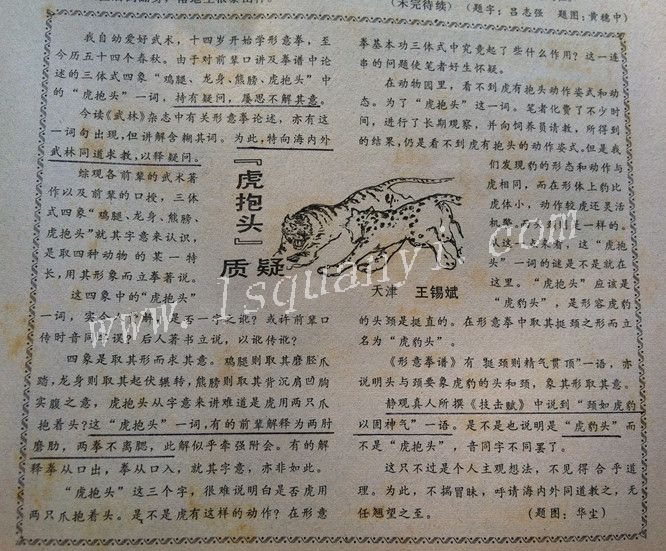 (未完待续) (题字：吕志强 题图：黄穗中)
『虎抱头』
质疑
天津 王锡斌
我自幼爱好武术，十四岁开始学形意拳，至
今历五十四个春秋。由于对前辈口讲及拳谱中论
述的三体式四象“鸡腿、龙身、熊膀、虎抱头”中
的“虎抱头”一词，持有疑问，屡思不解其意。
今读《武林》杂志中有关形意拳论述，亦有这
一词句出现，但讲解含糊其词。为此，特向海内外
武林同道求教，以释疑问。
综观各前辈的武术著
作以及前辈的口授，三体
式四象“鸡腿、龙身、熊膀、
虎抱头”就其字意来认识，
是取四种动物的某一特
长，用其形象而立拳著说。
这四象中的“虎抱头”
一词，实令人 解 是否一字之讹？或许前辈口
传时音同字误？后人著书立说，以讹传讹？
四象是取其形而求其意。鸡腿则取其磨胫爪
蹬，龙身则取其起伏辗转，熊膀则取其背沉肩凹胸
实腹之意，虎抱头从字意来讲难道是虎用两只爪
抱着头？这“虎抱头”一词，有的前辈解释为两肘
磨肋，两拳不离腮，此解似乎牵强附会。有的解
释拳从口出，拳从口入，就其字意，亦非如此。
“虎抱头”这三个字，很难说明白是否虎用
两只爪抱着头。是不是虎有这样的动作？在形意
拳基本功三体式中究竟起了些什么作用？这一连
串的问题使笔者好生怀疑。
在动物园里，看不到虎有抱头动作姿式和动
态。为了“虎抱头”这一词。笔者化费了不少时
间，进行了长期观察，并向饲养员请教，所得到
的结果，仍是看不到虎有抱头的动作姿式。但是我
们发现豹的形态和动作与
虎相同，而在形体上豹比
虎体小，动作较虎还灵活
机警，而 是一样的。
从这一 来看，这“虎抱
头”一词的谜是不是就在
这里。“虎抱头”应该是
“虎豹头”，是形容虎豹
的头颈是挺直的。在形意拳中取其挺颈之形而立
名为“虎豹头”。
《形意拳谱》有“挺颈则精气贯顶”一语，亦
说明头与颈要象虎豹的头和颈，象其形取其意。
静观真人所撰《技击赋》中说到“颈如虎豹
以固神气”一语。是不是也说明是“虎豹头”而
不是“虎抱头”，音同字不同罢了。
这只不过是个人主观想法，不见得合乎道
理。为此，不揣冒昧，呼请海内外同道教之，无
任翘望之至。 (题图：华尘)
www.lsquanyi.com